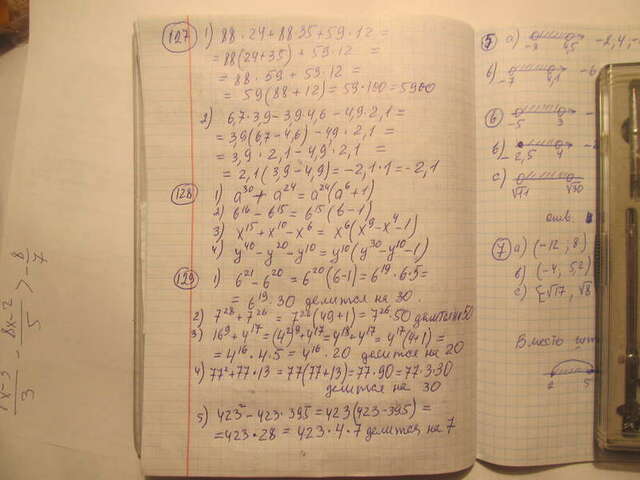 127 1) 88 · 24 + 88 · 35 + 59 · 12 =
= 88(24+35) + 59 · 12 =
= 88 · 59 + 59 · 12 =
= 59(88 + 12) = 59 · 100 = 5900
2) 6,7 · 3,9 - 3,9 · 4,6 - 4,9 · 2,1 =
= 3,9(6,7 - 4,6) - 4,9 · 2,1 =
= 3,9 · 2,1 - 4,9 · 2,1 =
= 2,1(3,9 - 4,9) = -2,1 · 1 = -2,1
128 1) a³⁰ + a²⁴ = a²⁴(a⁶ + 1)
2) b¹⁶ - b¹⁵ = b¹⁵(b - 1)
3) x¹⁵ + x¹⁰ - x⁶ = x⁶(x⁹ - x⁴ - 1)
4) y⁴⁰ - y²⁰ - y¹⁰ = y¹⁰(y³⁰ - y¹⁰ - 1)
129 1) 6²¹ - 6²⁰ = 6²⁰(6-1) = 6¹⁹ · 6 · 5 =
= 6¹⁹ · 30 делится на 30.
2) 7²⁸ + 7²⁶ = 7²⁶(49+1) = 7²⁶ · 50 делится 50
3) 16⁹ + 4¹⁷ = (4²)⁹ + 4¹⁷ = 4¹⁸ + 4¹⁷ = 4¹⁷(4+1) =
= 4¹⁶ · 4 · 5 = 4¹⁶ · 20 делится на 20
4) 77² + 77 · 13 = 77(77+13) = 77 · 90 = 77 · 3 · 30
делится на 30
5) 423² - 423 · 395 = 423(423 - 395) =
= 423 · 28 = 423 · 4 · 7 делится на 7
5 а) -3 4,5 -2,4,
в) -7 4,1 -6
6 -5 3
в) -2,5 4
с) √11 √30
отв.
7 а) (-12; 8)
в) (-4; 52)
с) {√17, √8
Вместо
2 5
8x-2 / 5 > -8/7